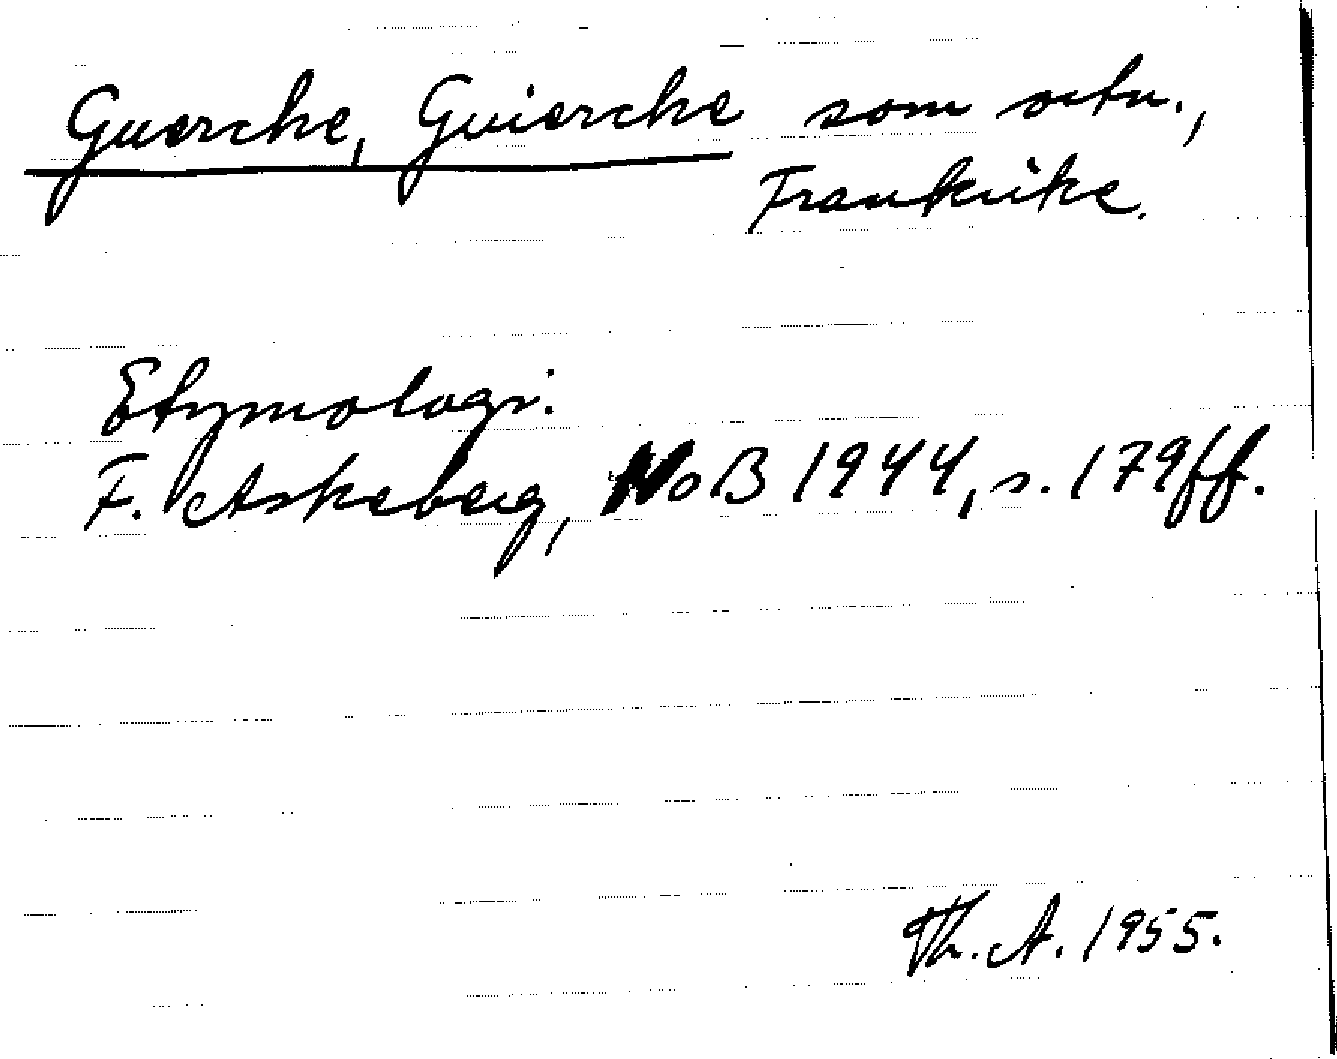 Guerche, Guierche som ortn.,
Frankrike.
Etymologi:
F. Askeberg, NoB 1944, s. 179ff.
Th. A. 1955.